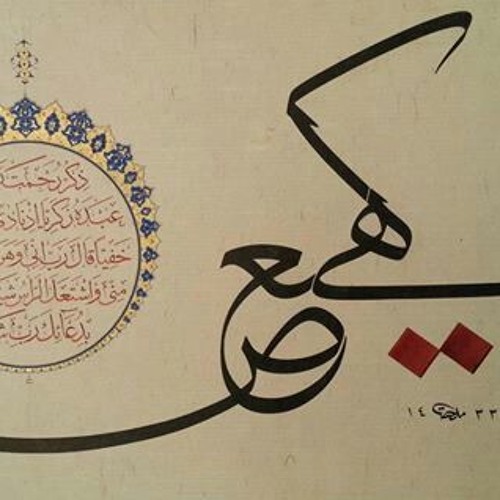 كهيعص
ذكر رحمت
عبده زكريا اذ نادى
خفيا قال رب اني وهن
مني واشتعل الراس شيبا
بدعائك رب
١٤ ٣٣